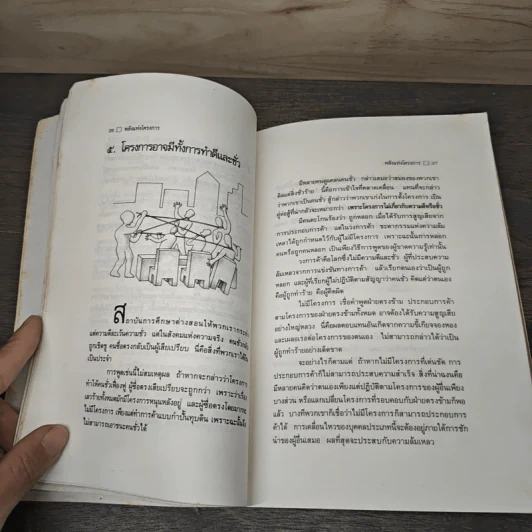 ๒๖ □ พลังแห่งโครงการ
๕. โครงการอาจมีทั้งการทำดีและชั่ว
สถาบันการศึกษาต่างสอนให้พวกเรากระทำ
แต่ความดีละเว้นความชั่ว แต่ในสังคมแห่งความจริง คนชั่วกลับ
ถูกเชิดชู คนซื่อตรงกลับเป็นผู้เสียเปรียบ นี่คือสิ่งที่พวกเราได้
เป็นประจำ
การพูดเช่นนี้ไม่สมเหตุผล ถ้าหากจะกล่าวว่าโครงการ
ทำให้คนชั่วเฟื่องฟู ผู้ซื่อตรงเสียเปรียบจะถูกกว่า เพราะว่าเรื่อง
เลวร้ายทั้งหมดมักมีโครงการหนุนหลังอยู่ และผู้ซื่อตรงโดยมาก
ไม่มีโครงการ เพียงแต่ทำการค้าแบบกำปั้นทุบดิน เพราะฉะนั้นจึง
ไม่สามารถเอาชนะคนชั่วได้
พลังแห่งโครงการ □ ๒๗
มีหลายคนดูแคลนคนชั่ว กล่าวเสมอว่าสมองของพวกเขา
คิดแต่สิ่งชั่วร้าย นี่คือการเข้าใจที่คลาดเคลื่อน แทนที่จะกล่าว
ว่าพวกเขาเป็นคนชั่ว สู้กล่าวว่าพวกเขาเก่งในการตั้งโครงการ เป็น
คู่ต่อสู้ที่น่ากลัวจะเหมาะกว่า เพราะโครงการไม่เกี่ยวกับความดีหรือชั่ว
มีคนตะโกนร้องว่า ถูกหลอก เมื่อได้รับการสูญเสียจาก
การประกอบการค้า แต่ในวงการค้า ชะตากรรมแห่งความล้ม
เหลวได้ถูกกำหนดไว้กับผู้ไม่มีโครงการ เพราะฉะนั้นการหลอก
คนหรือถูกคนหลอก เป็นเพียงวิธีการพูดของผู้ขาดความรู้เท่านั้น
วงการค้าคือโลกซึ่งไม่มีความดีและชั่ว ผู้ที่ประสบความ
ล้มเหลวจากการแข่งขันทางการค้า แล้วเรียกตนเองว่าเป็นผู้ถูก
หลอก และผู้ที่เรียกผู้ไม่ปฏิบัติตามสัญญาว่าคนชั่ว คิดแต่ว่าตนเอง
คือผู้ถูกทำร้าย คือผู้คิดผิด
ไม่มีโครงการ เชื่อคำพูดฝ่ายตรงข้าม ประกอบการค้า
ตามโครงการของฝ่ายตรงข้ามทั้งหมด อาจต้องได้รับความสูญเสีย
อย่างใหญ่หลวง นี่คือผลตอบแทนอันเกิดจากความขี้เกียจจองหอง
และเผลอเรอต่อโครงการของตนเอง ไม่สามารถกล่าวได้ว่าเป็น
ผู้ถูกทำร้ายอย่างเด็ดขาด
จะอย่างไรก็ตามแต่ ถ้าหากไม่มีโครงการที่เด่นชัด การ
ประกอบการค้าก็ไม่สามารถประสบความสำเร็จ สิ่งที่น่าฉงนคือ
มีหลายคนคิดว่าตนเองเพียงแต่ปฏิบัติตามโครงการของผู้อื่นเพียง
บางส่วน หรือแลกเปลี่ยนโครงการที่รอบคอบกับฝ่ายตรงข้ามก็พอ
แล้ว บางทีพวกเราก็เชื่อว่าไม่มีโครงการก็สามารถประกอบการ
ค้าได้ การเคลื่อนไหวของบุคคลประเภทนี้จะต้องอยู่ภายใต้การชัก
นำของผู้อื่นเสมอ ผลที่สุดจะประสบกับความล้มเหลว